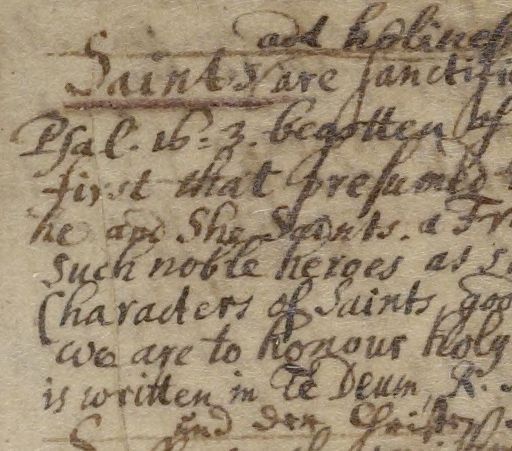 act holiness
Saints are sanctifi
Psal. 16: 3. begotten of
first that presumed
he and She Saints. a Fr
such noble heroes as s
Characters of Saints, goo
we are to honour holy
is written in Te Deum, K.
und den Christ